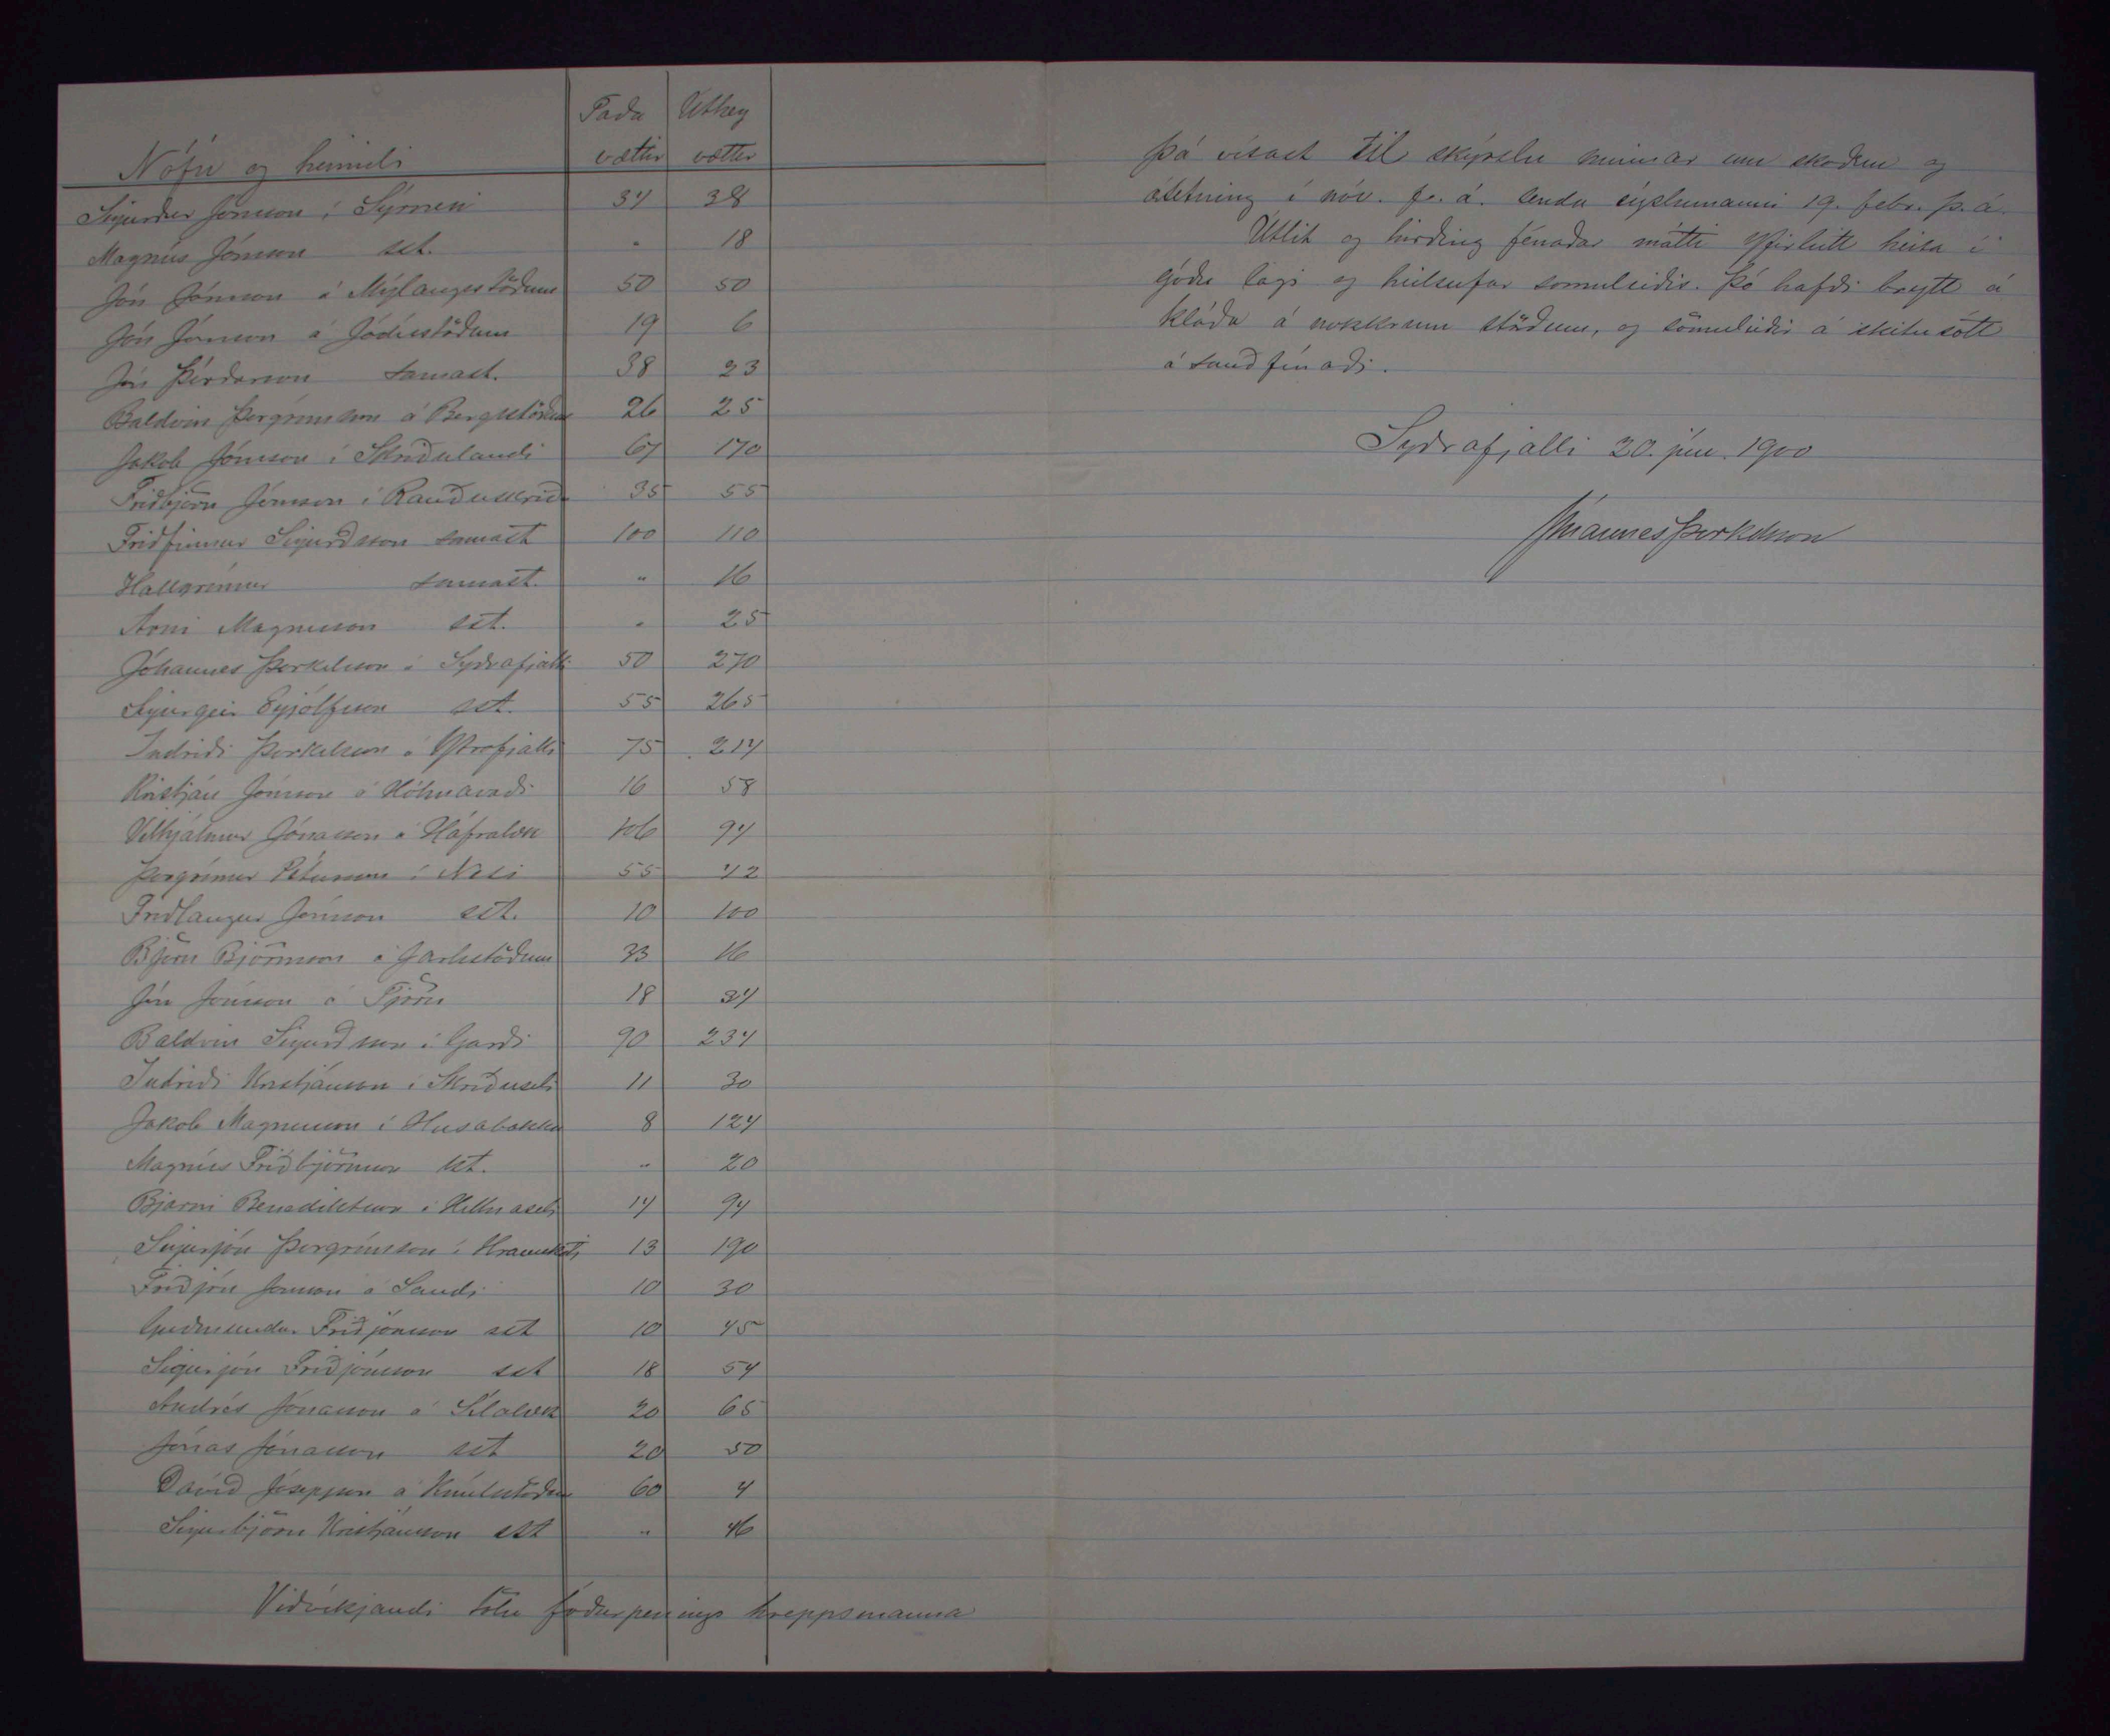 Taða Úthey
Nöfn og heimili vættir vættir
Sigurður Jónsson í Sýrnesi 34 38
Magnús Jónsson sst. " 18
Jón Jónsson á Mýlaugsstöðum 50 50
Jón Jónsson á Jódísstöðum 19 6
Jón Þórðarson samast. 38 23
Baldvin Þorgrímsson á Bergsstöðum 26 25
Jakob Jónsson í Skriðulandi 67 170
Friðbjörn Jónsson í Rauðuskriðu 35 55
Friðfinnur Sigurðsson samast 100 110
Hallgrímur samast. " 16
Árni Magnússon sst. " 25
Jóhannes Þorkelsson á Syðrafjalli 50 270
Sigurgeir Eyjólfsson sst. 55 265
Indriði Þorkelsson á Ytrafjalli 75 214
Kristján Jónsson á Hólmavaði 16 58
Vilhjálmur Jónasson á Hafralæk 46 94
Þorgrímur Pétursson í Nesi 55 42
Friðlaugur Jónsson sst. 10 100
Björn Björnsson á Jarlsstöðum 33 16
Jón Jónsson á Tjörn 18 34
Baldvin Sigurðsson í Garði 90 234
Indriði Kristjánsson í Skriðuseli 11 30
Jakob Magnússon í Húsabakka 8 124
Magnús Friðbjörnsson sst. " 20
Bjarni Benediktsson í Hellnaseli 14 94
Sigurjón Þorgrímsson í Hraunkoti 13 190
Friðjón Jónsson á Sandi 10 30
Guðmundur Friðjónsson sst 10 45
Sigurjón Friðjónsson sst 18 54
Andrés Jónasson á Sílalæk 20 65
Jónas Jónasson sst 20 50
Davíð Jósepsson á Knútsstöðum 60 4
Sigurbjörn Kristjánsson sst " 46
Viðvíkjandi tölu fóðurpenings hreppsmanna
þá vísast til skýrslu minnar um skoðun og
ásetning í nóv. f. á. senda sýslumanni 19. febr. þ. á.
Útlit og hirðing fénaðar mátti yfirleitt heita í
góðu lagi og heilsufar sömuleiðis. Þó hafði brytt á
kláða á nokkrum stöðum, og sömuleiðis á skitusótt
á sauðfénaði.
Syðrafjalli 20. jún. 1900
Jóhannes Þorkelsson